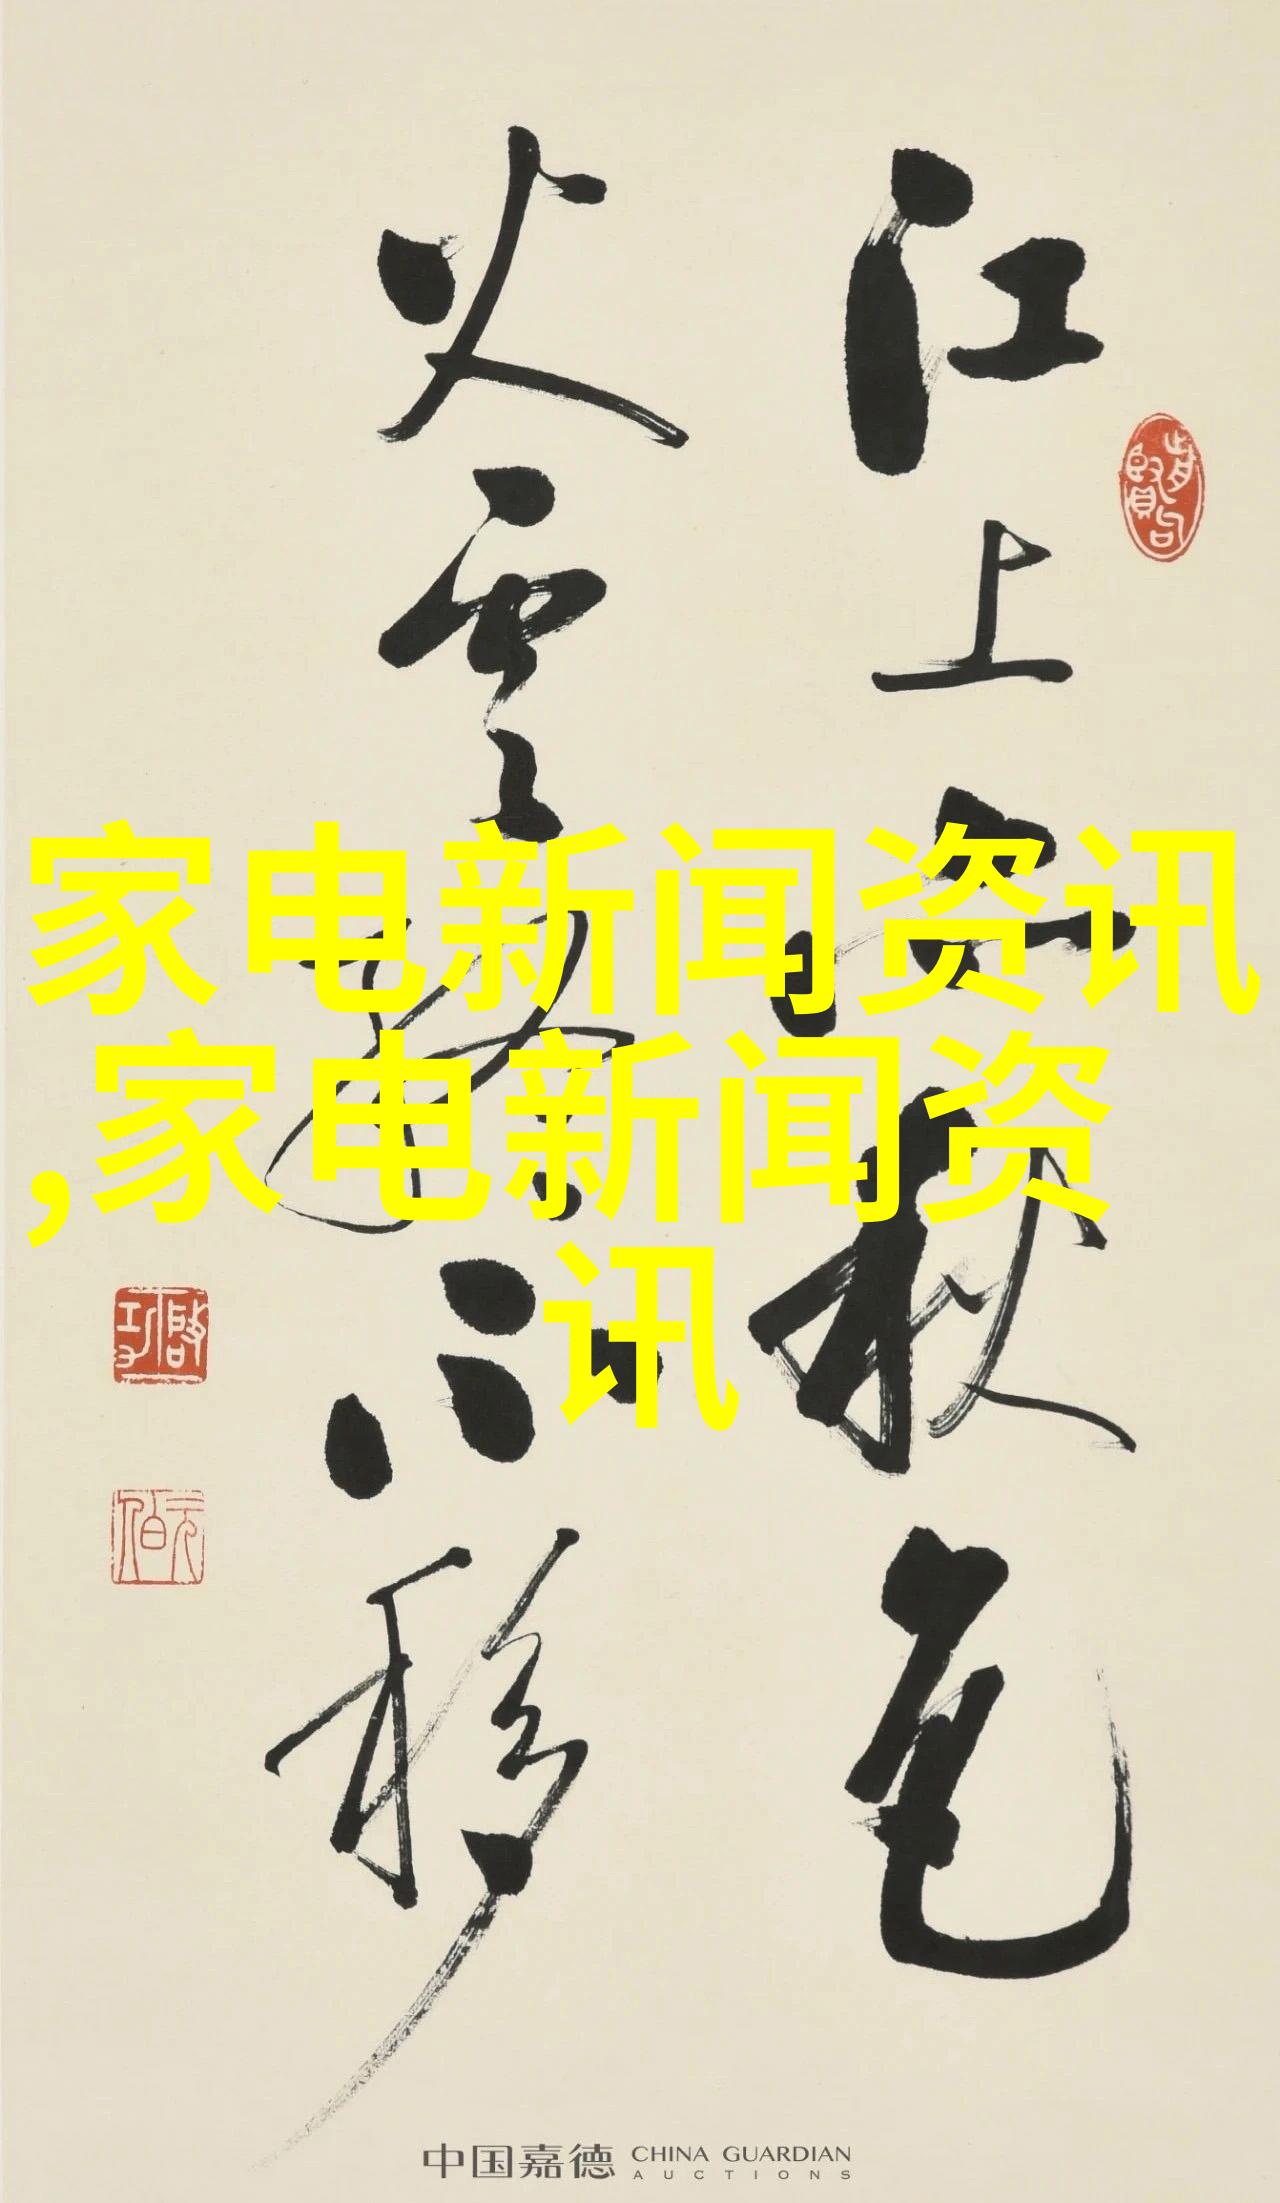 江上亦秋色
火雲終不移
家电新闻资讯
,家电新闻资
讯
啟功
元伯
中国嘉德 CHINA GUARDIAN
AUCTIONS